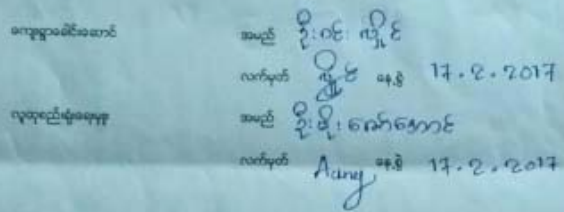 ကျေးရွာခေါင်းဆောင် အမည် ဦးဝင်းလှိုင်
လက်မှတ် လှိုင် နေ့စွဲ 17.2.2017
လူထုစည်းရုံးရေးမှူး အမည် ဦးမိုးအောင်
လက်မှတ် Aung နေ့စွဲ 17.2.2017